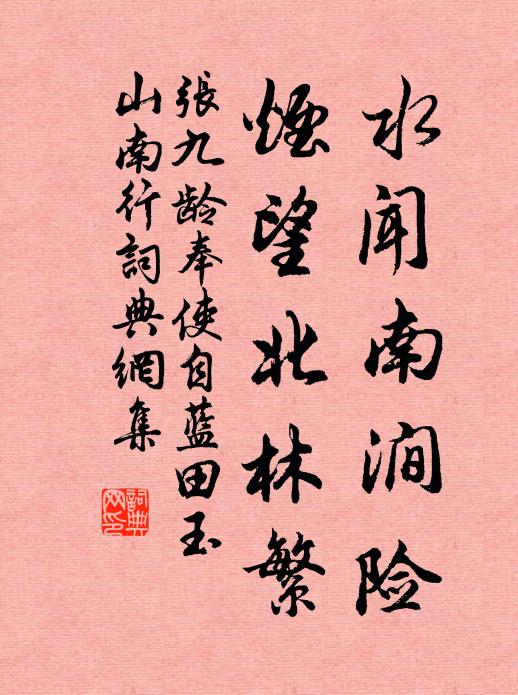 水闻南涧险
煙望北林繁
張九龄奉使自蓝田玉
山南行詞典網集
詞典
网印